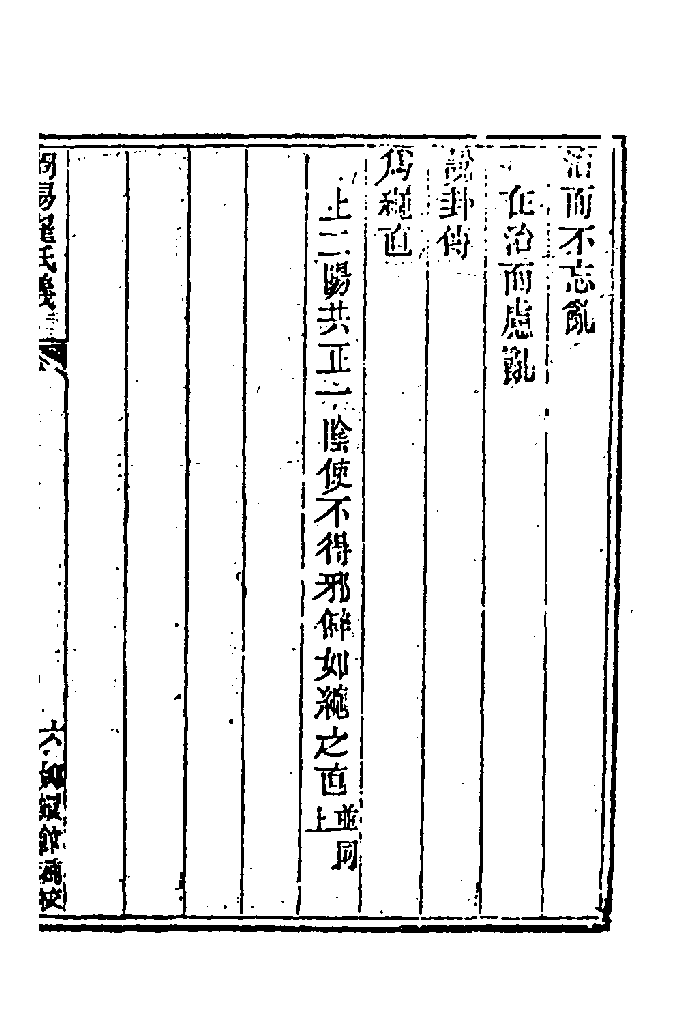 治而不忘亂
在治而慮亂
說卦傳
爲繩直
上二陽共正一陰使不得邪僻如繩之直並同上
周易翟氏義
六
嫏嬛館補校